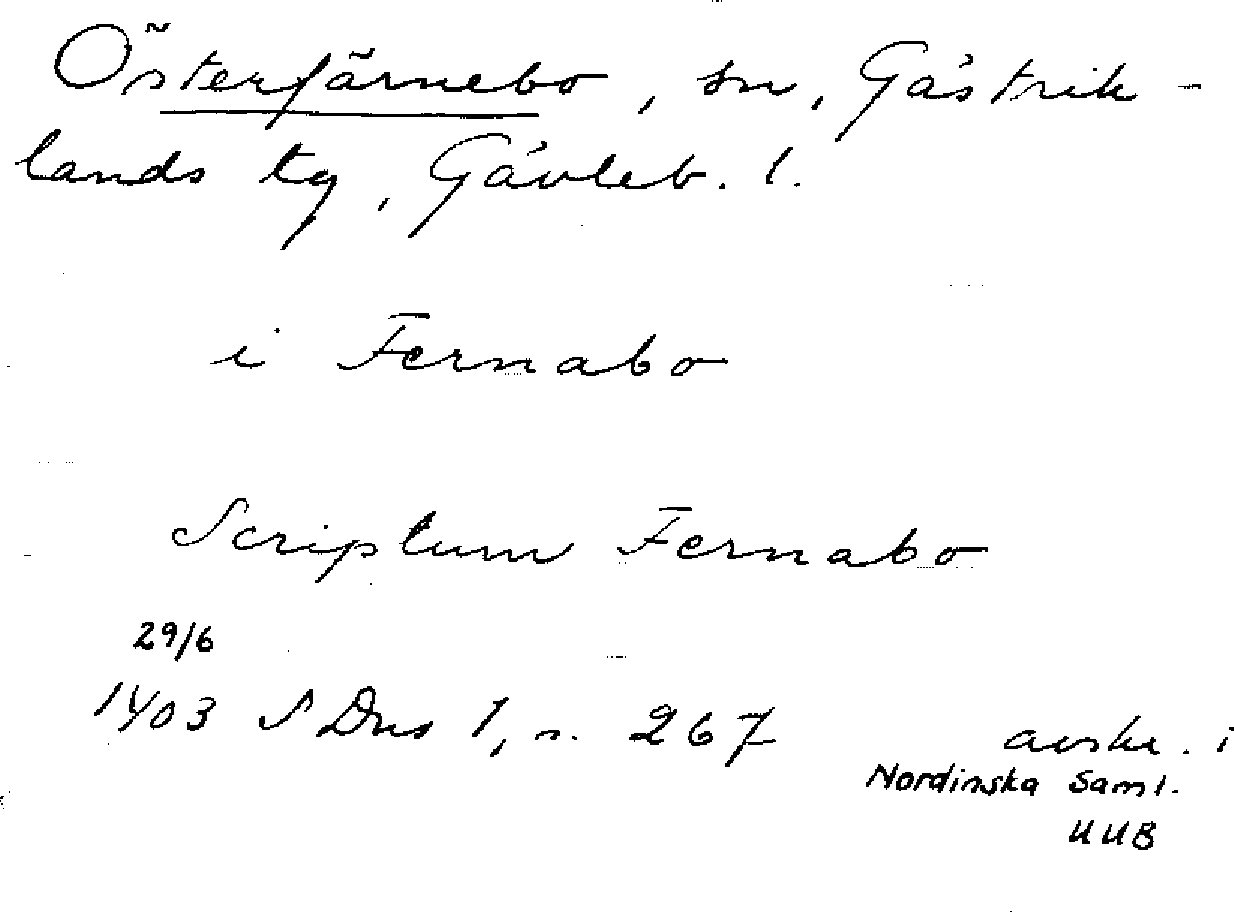 Österfärnebo, sn, Gästrik-
lands tg, Gävleb. l.
i Fernabo
Scriptum Fernabo
29/6
1403 S Dns 1, s. 267
avskr. i
Nordinska Saml.
UUB